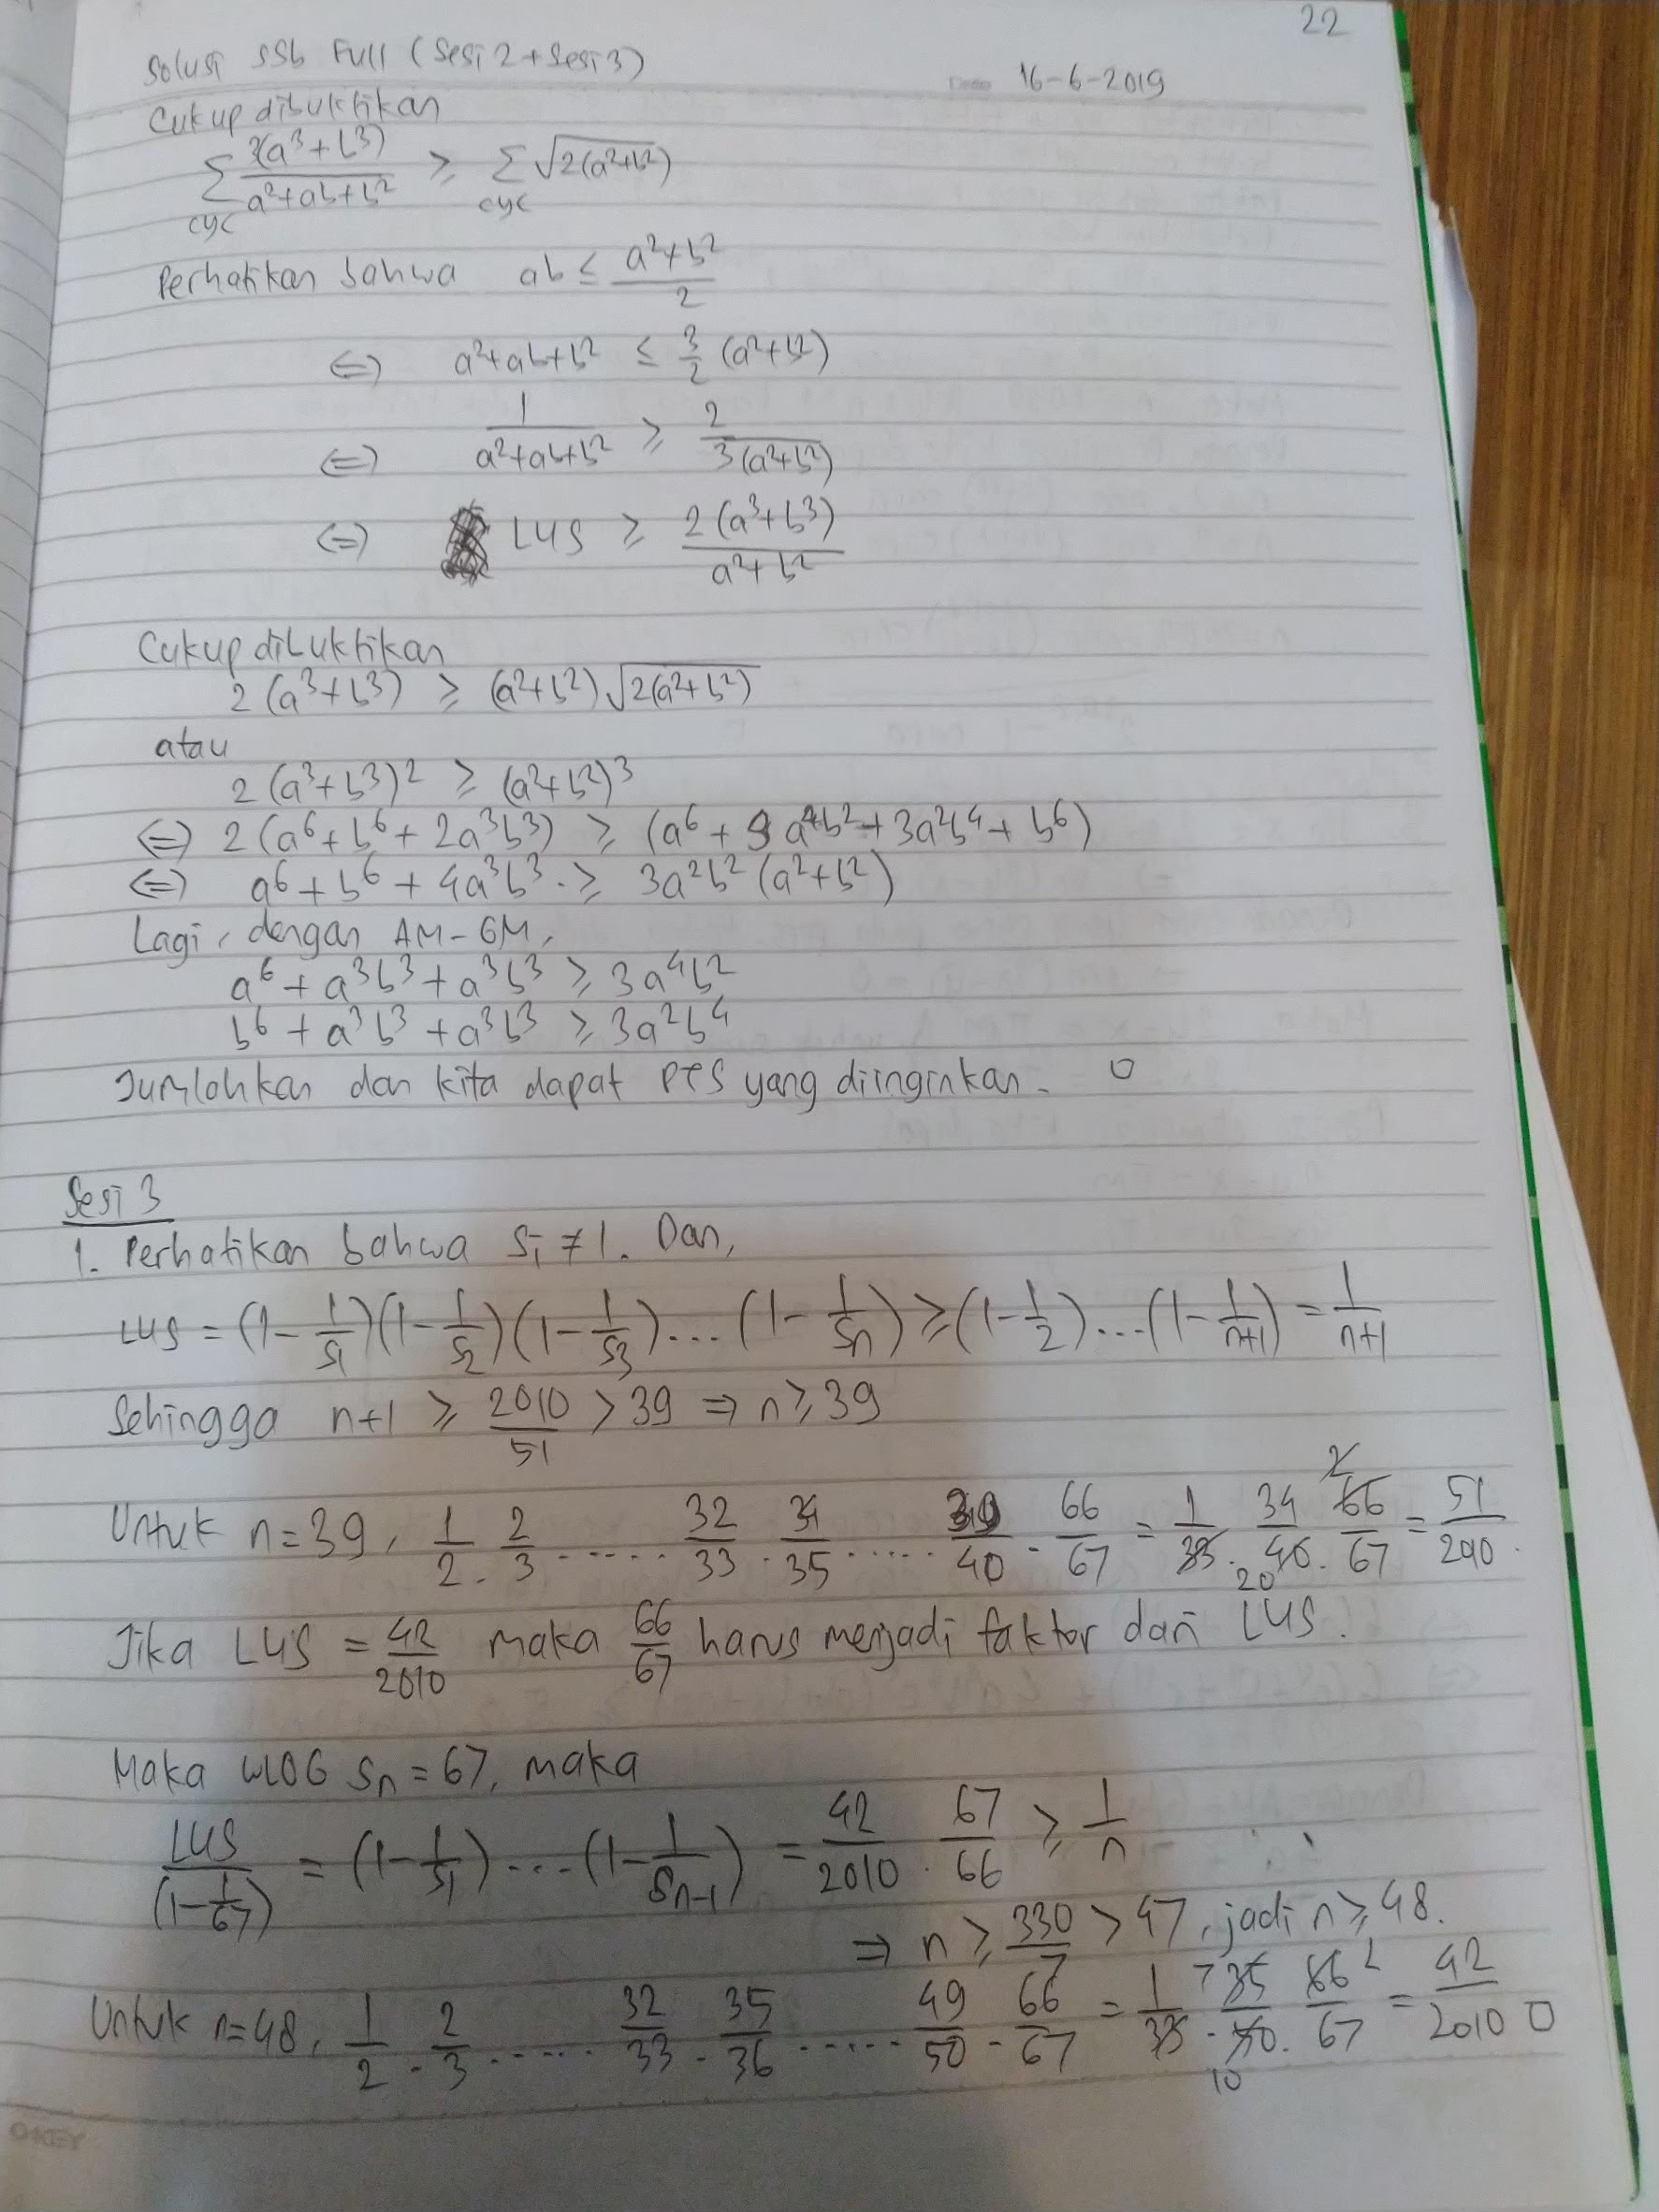 22
Solusi SSb Full (Sesi 2 + Sesi 3)
16-6-2019
Cukup dibuktikan
∑cyc 3(a³+b³)/(a²+ab+b²) ≥ ∑cyc √(2(a²+b²))
Perhatikan bahwa ab ≤ (a²+b²)/2
⇔ a²+ab+b² ≤ 3/2 (a²+b²)
⇔ 1/(a²+ab+b²) ≥ 2/(3(a²+b²))
⇔ LUS ≥ 2(a³+b³)/(a²+b²)
Cukup dibuktikan
2(a³+b³) ≥ (a²+b²)√(2(a²+b²))
atau
2(a³+b³)² ≥ (a²+b²)³
⇔ 2(a⁶+b⁶+2a³b³) ≥ (a⁶+3a⁴b²+3a²b⁴+b⁶)
⇔ a⁶+b⁶+4a³b³ ≥ 3a²b²(a²+b²)
Lagi, dengan AM-GM,
a⁶+a³b³+a³b³ ≥ 3a⁴b²
b⁶+a³b³+a³b³ ≥ 3a²b⁴
Jumlahkan dan kita dapat PTS yang diinginkan. □
Sesi 3
1. Perhatikan bahwa sᵢ ≠ 1. Dan,
LUS = (1-1/s₁)(1-1/s₂)(1-1/s₃)...(1-1/sₙ) ≥ (1-1/2)...(1-1/(n+1)) = 1/(n+1)
Sehingga n+1 ≥ 2010/51 > 39 ⇒ n ≥ 39
Untuk n=39, 1/2 . 2/3 ..... 32/33 . 34/35 ..... 39/40 . 66/67 = 1/33 . 34/40 20 . 66/67 2 = 51/2010.
Jika LUS = 42/2010 maka 66/67 harus menjadi faktor dari LUS.
Maka WLOG sₙ = 67, maka
LUS/(1-1/67) = (1-1/s₁)...(1-1/sₙ₋₁) = 42/2010 . 67/66 ≥ 1/n
⇒ n ≥ 330/7 > 47, jadi n ≥ 48.
Untuk n=48, 1/2 . 2/3 ..... 32/33 . 35/36 ..... 49/50 . 66/67 = 1/33 . 7 35/50 10 . 66/67 2 = 42/2010 □
OKEY